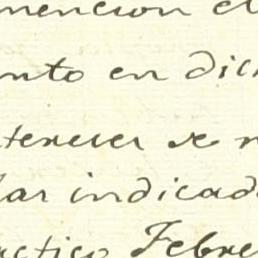 mencion el
nto en dic
tereses se
lar indicad
actico Febre